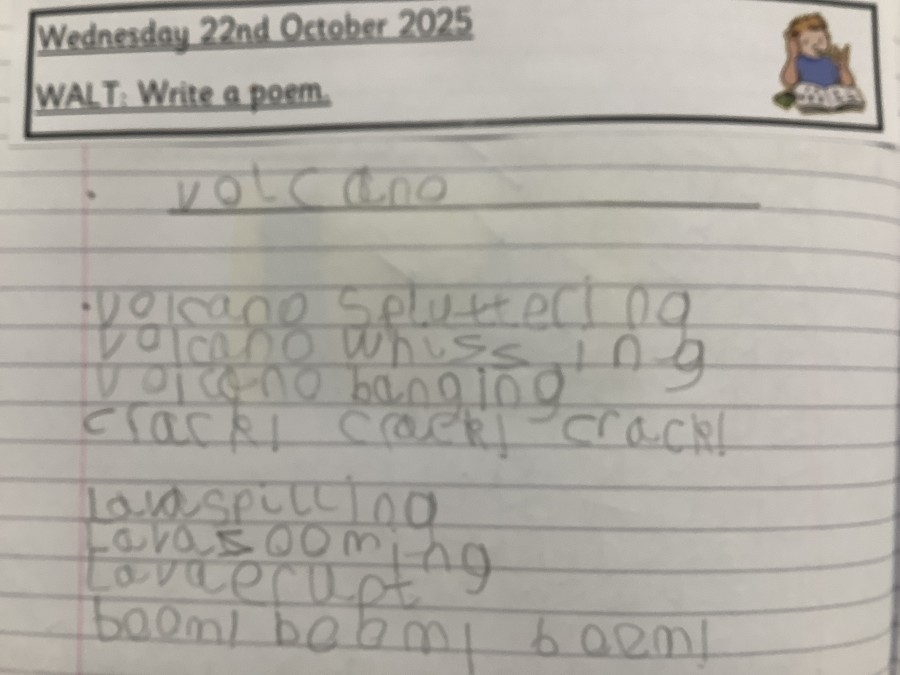 Wednesday 22nd October 2025
WALT: Write a poem.
volcano
volcano spluttering
volcano whissing
volcano banging
crack! crack! crack!
Lava spilling
Lava sooming
Lava erupt
boom! boom! boom!